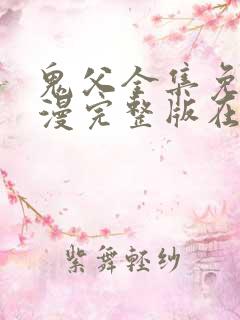 鬼父全集免
漫完整版在
紫舞轻纱